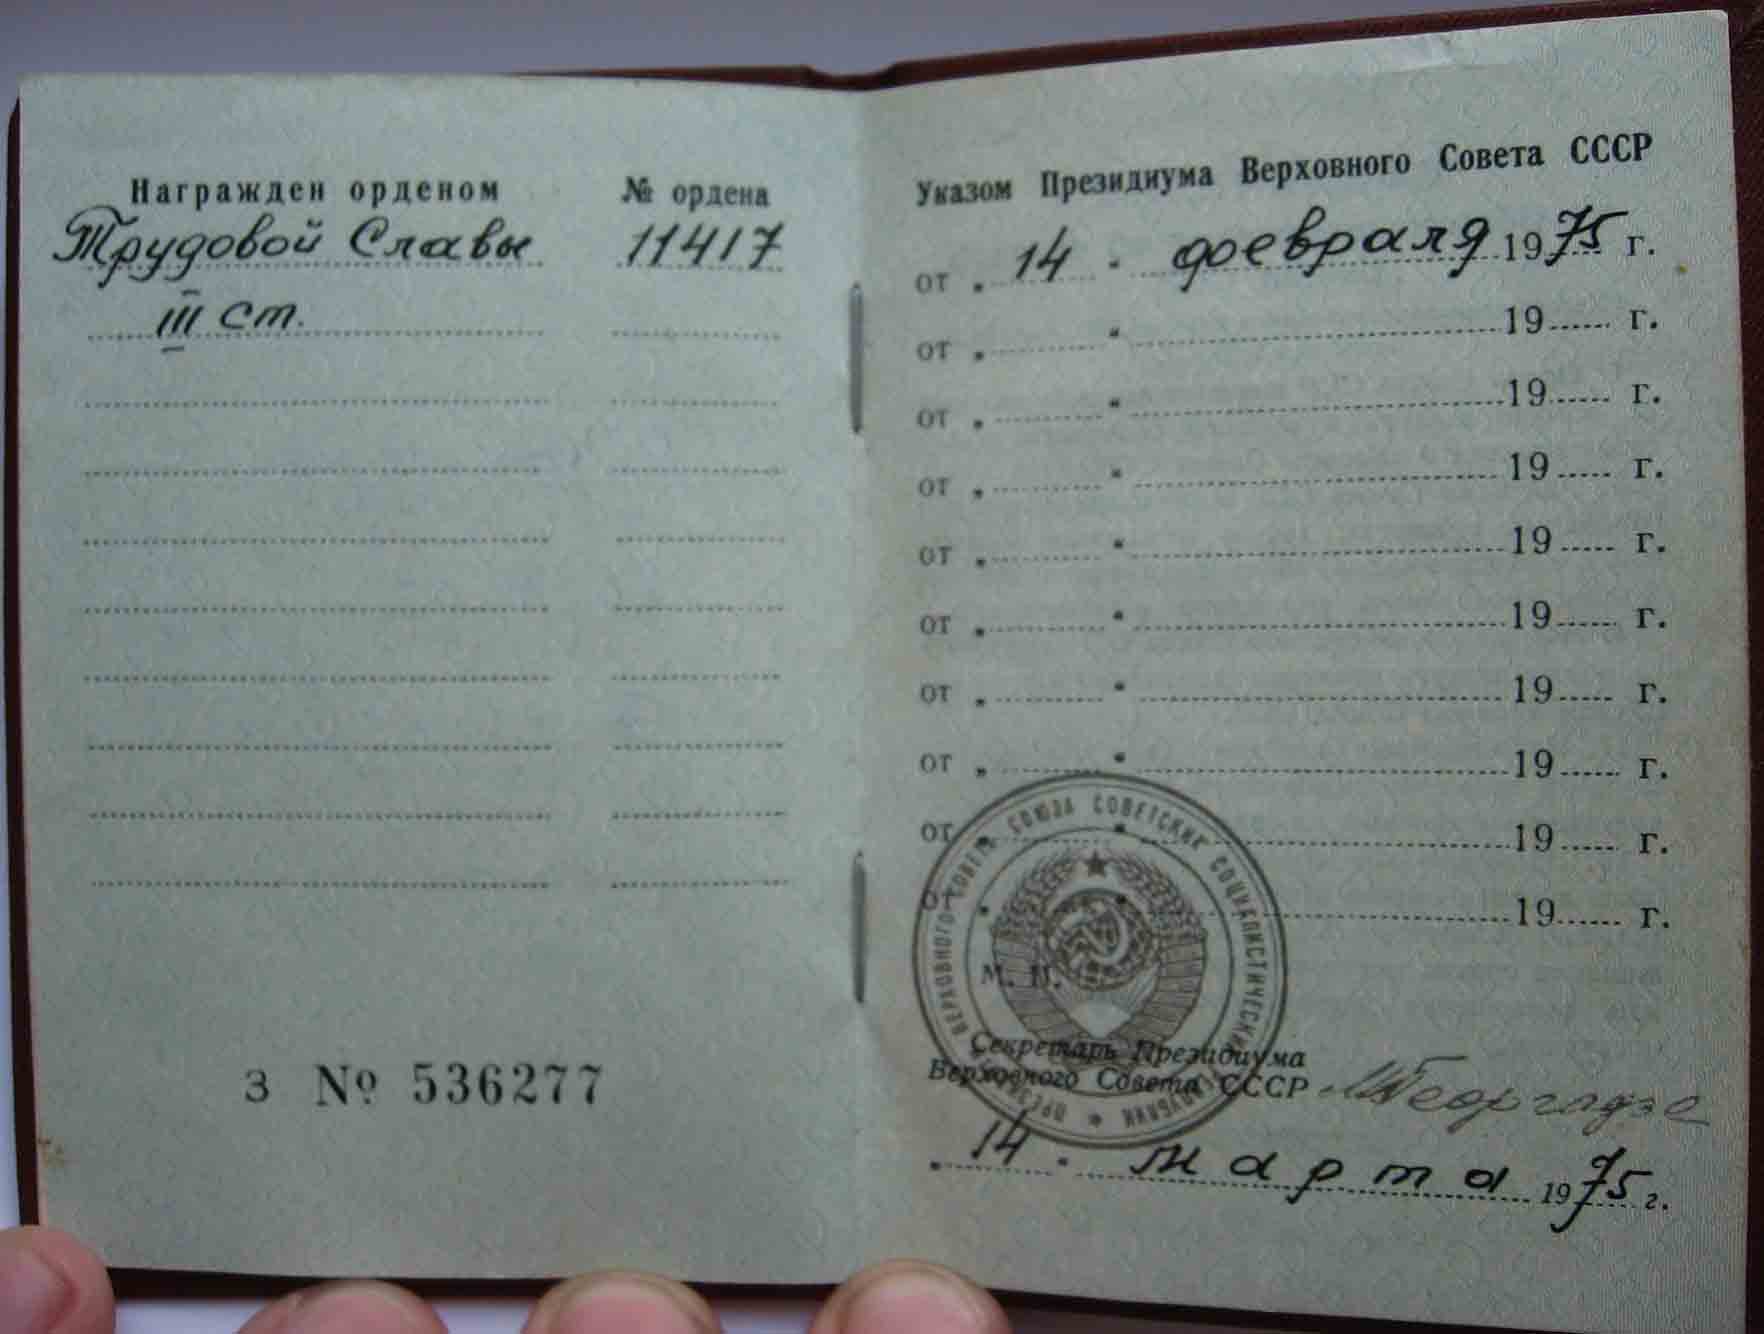 Награжден орденом № ордена
Трудовой Славы 11417
III ст.
З № 536277
Указом Президиума Верховного Совета СССР
от „ 14 “ февраля 1975 г.
от „ “ 19 г.
от „ “ 19 г.
от „ “ 19 г.
от „ “ 19 г.
от „ “ 19 г.
от „ “ 19 г.
от „ “ 19 г.
от „ “ 19 г.
от „ “ 19 г.
ПРЕЗИДИУМ ВЕРХОВНОГО СОВЕТА СОЮЗА СОВЕТСКИХ СОЦИАЛИСТИЧЕСКИХ РЕСПУБЛИК
М. П.
Секретарь Президиума
Верховного Совета СССР МГеоргадзе
„ 14 “ марта 1975 г.